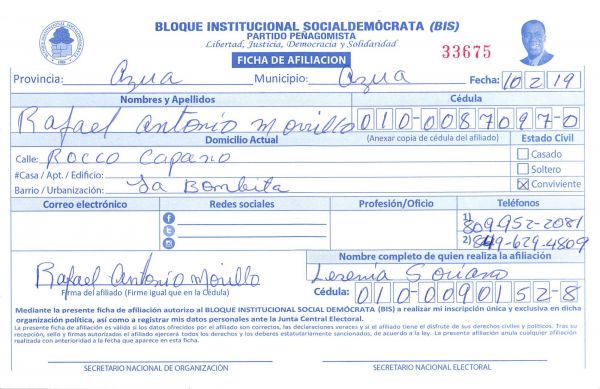 BLOQUE INSTITUCIONAL SOCIALDEMÓCRATA (BIS)
PARTIDO PEÑAGOMISTA
Libertad, Justicia, Democracia y Solidaridad
FICHA DE AFILIACION
33675
Provincia: Azua Municipio: Azua Fecha: 10 2 19
Nombres y Apellidos Cédula
Rafael Antonio Morillo 010-0087097-0
Domicilio Actual (Anexar copia de cédula del afiliado) Estado Civil
Calle: Rocco Capano Casado
#Casa / Apt. / Edificio: Soltero
Barrio / Urbanización: La Bombita Conviviente
Correo electrónico Redes sociales Profesión/Oficio Teléfonos
1) 809-952-2081
2) 849-629-4809
Nombre completo de quien realiza la afiliación
Rafael Antonio Morillo Lesenia Soriano
Firma del afiliado (Firme igual que en la Cédula) Cédula: 010-0090152-8
Mediante la presente ficha de afiliación autorizo al BLOQUE INSTITUCIONAL SOCIAL DEMÓCRATA (BIS) a realizar mi inscripción única y exclusiva en dicha
organización política, así como a registrar mis datos personales ante la Junta Central Electoral.
La presente ficha de afiliación es válida si los datos ofrecidos por el afiliado son correctos, las declaraciones veraces y si el afiliado tiene el disfrute de sus derechos civiles y políticos. Tras su
recepción, sello y firmas autorizadas el afiliado ejercerá todos los derechos y los deberes estatutariamente sancionados, de acuerdo a la ley. La presente afiliación anula cualquier afiliación
realizada con anterioridad a la fecha que aparece en esta ficha.
SECRETARIO NACIONAL DE ORGANIZACIÓN SECRETARIO NACIONAL ELECTORAL